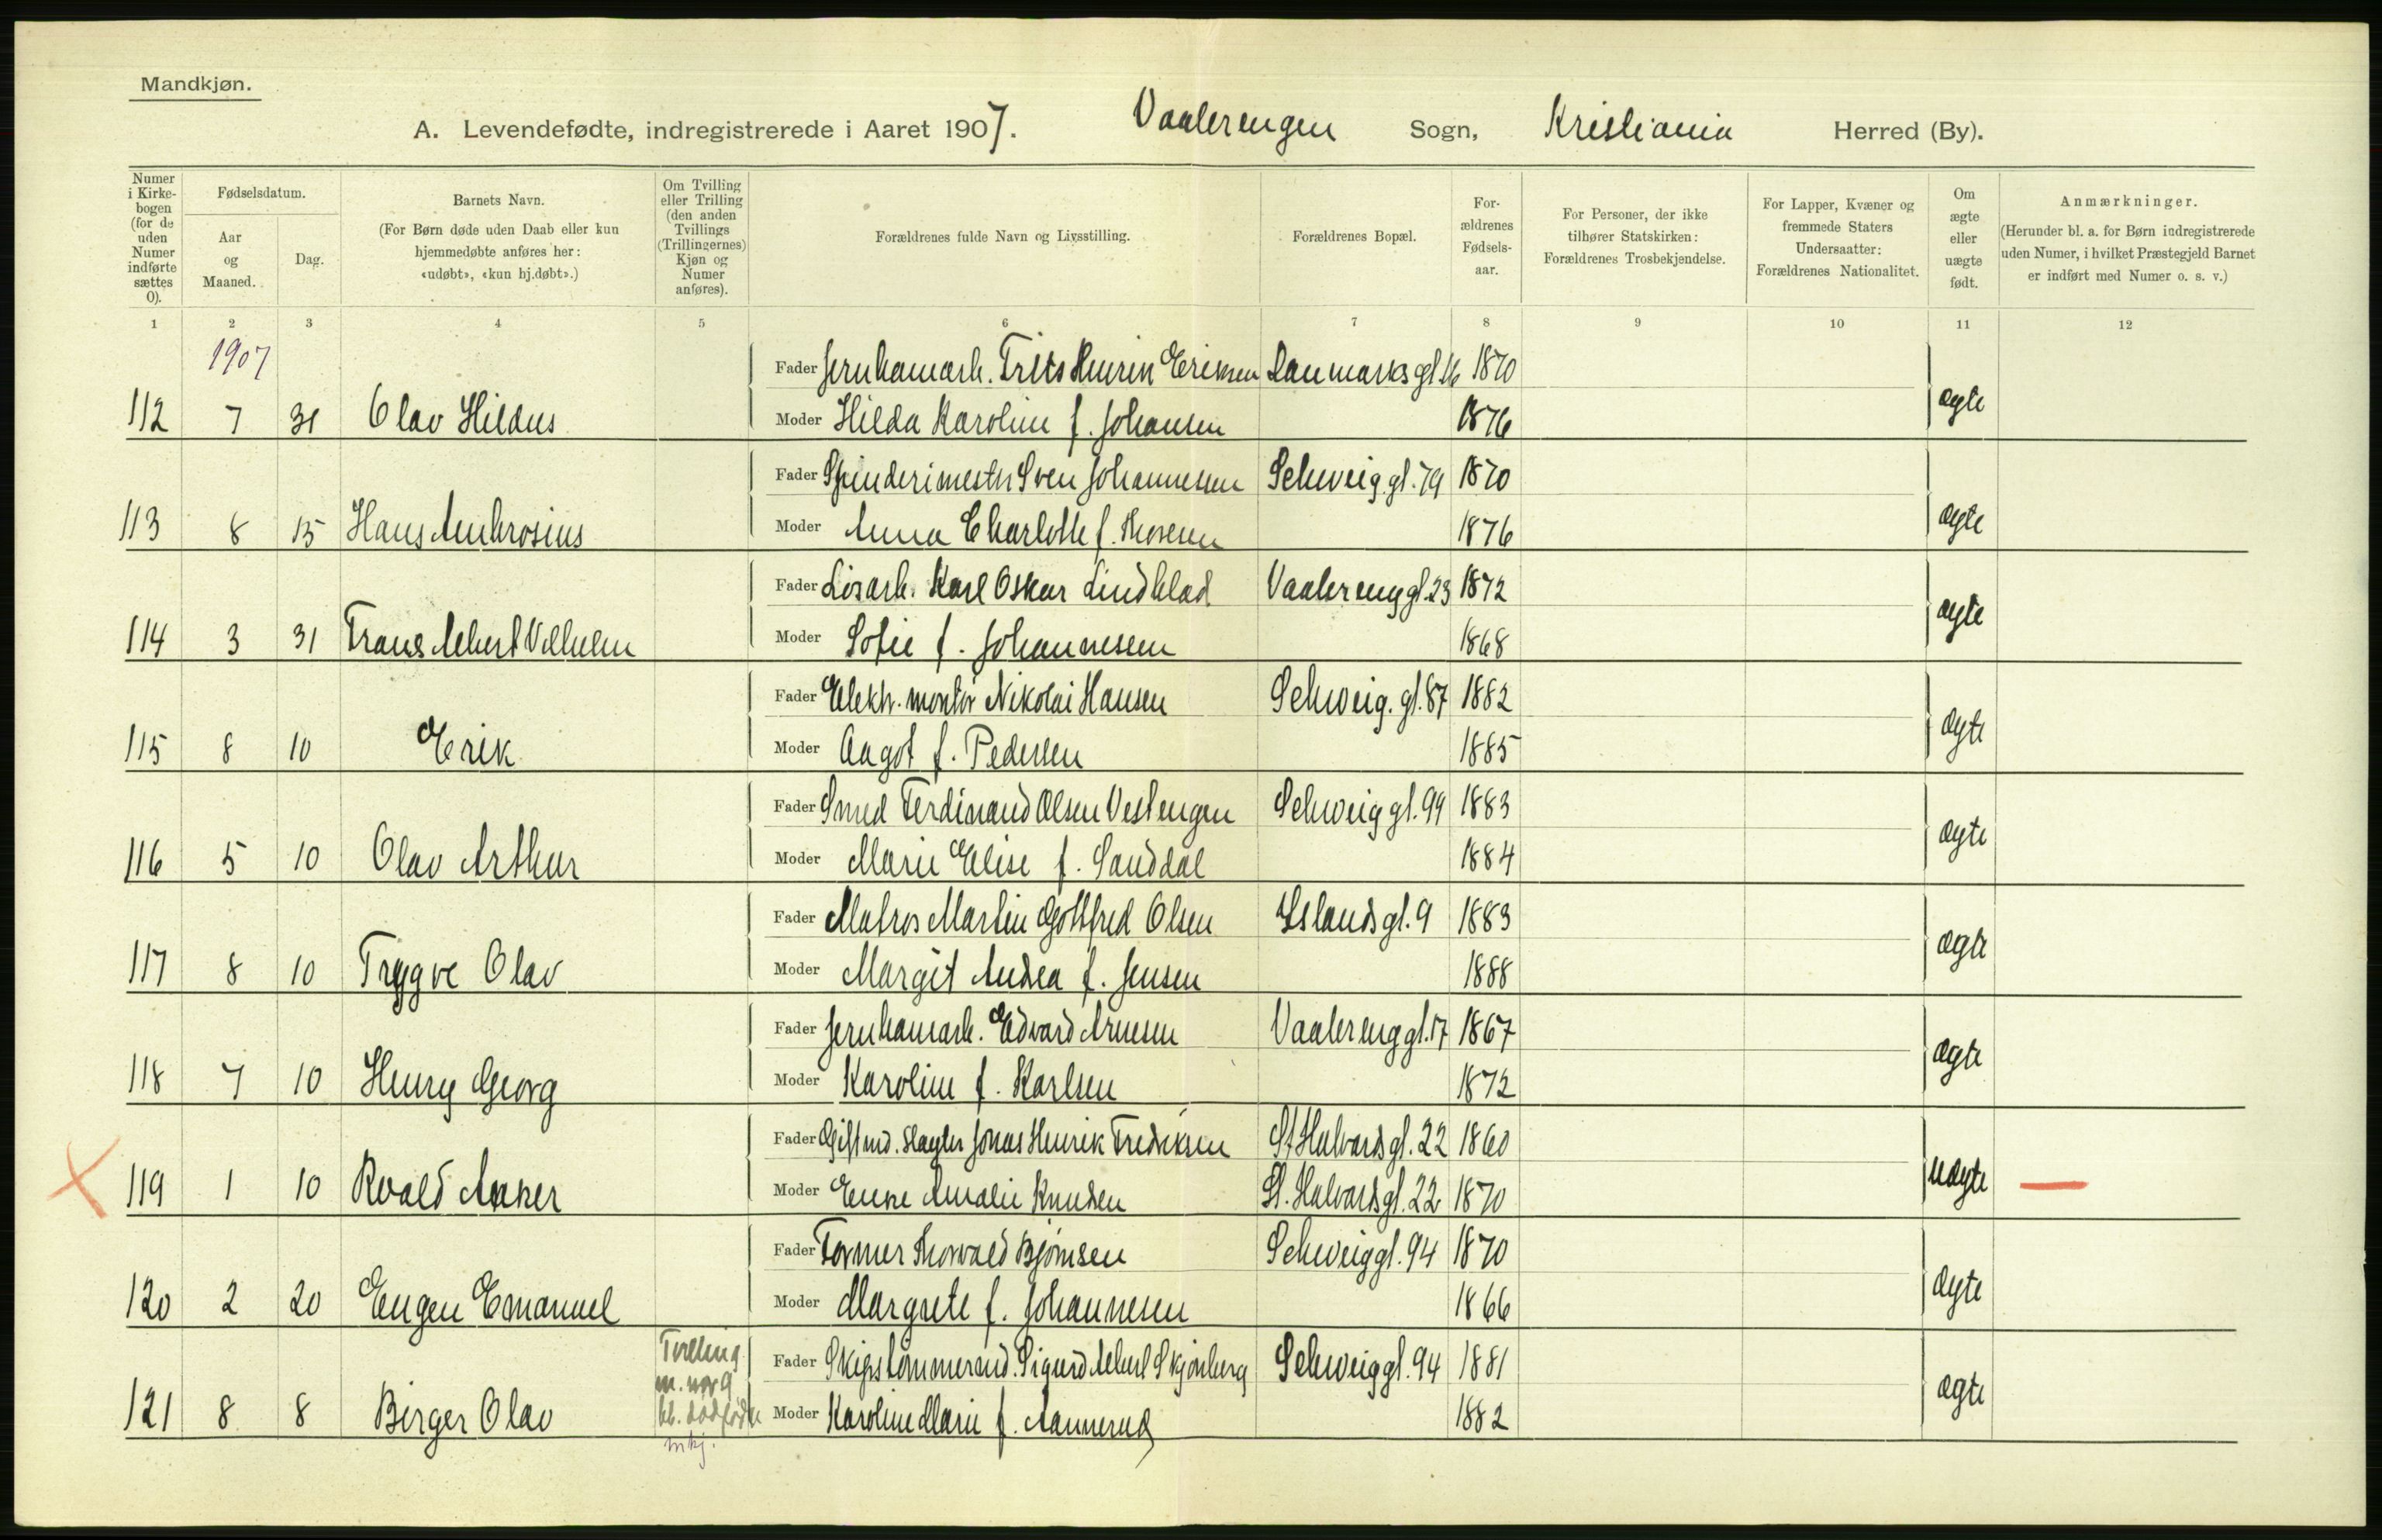 Mandkjøn.
A. Levendefødte, indregistrerede i Aaret 1907. Vaalerengen Sogn, Kristiania Herred (By).
Numer i Kirke-bogen (for de uden Numer indførte sættes 0).
Fødselsdatum.
Aar og Maaned.
Dag.
Barnets Navn.
(For Børn døde uden Daab eller kun hjemmedøbte anføres her: «udøbt», «kun hj.døbt».)
Om Tvilling eller Trilling (den anden Tvillings (Trillingernes) Kjøn og Numer anføres).
Forældrenes fulde Navn og Livsstilling.
Forældrenes Bopæl.
For-ældrenes Fødsels-aar.
For Personer, der ikke tilhører Statskirken: Forældrenes Trosbekjendelse.
For Lapper, Kvæner og fremmede Staters Undersaatter: Forældrenes Nationalitet.
Om ægte eller uægte født.
Anmærkninger.
(Herunder bl. a. for Børn indregistrerede uden Numer, i hvilket Præstegjeld Barnet er indført med Numer o. s. v.)
1 2 3 4 5 6 7 8 9 10 11 12
1907
Fader Jernbanearb. Frits Henrik Eriksen Danmarks gt. 16 1870
112 7 31 Olav Hildus Moder Hilda Karoline f. Johansen 1876 ægte
Fader Spinderimester Sven Johannesen Schweig. gt. 79 1870
113 8 15 Hans Ambrosius Moder Anna Charlotte f. Thoresen 1876 ægte
Fader Løsarb. Karl Oskar Lindblad Vaalereng gt. 23 1872
114 3 31 Frans Albert Vilhelm Moder Sofie f. Johannesen 1868 ægte
Fader Elektr. montør Nikolai Hansen Schweig. gt. 87 1882
115 8 10 Erik Moder Aagot f. Pedersen 1885 ægte
Fader Smed Ferdinand Olsen Vestengen Schweig gt. 99 1883
116 5 10 Olav Arthur Moder Marie Elise f. Sanddal 1884 ægte
Fader Matros Martin Gottfred Olsen Islands gt. 9 1883
117 8 10 Trygve Olav Moder Margit Andrea f. Jensen 1888 ægte
Fader Jernbanearb. Edvard Arnesen Vaalereng gt. 17 1867
118 7 10 Henry Georg Moder Karoline f. Karlsen 1872 ægte
Fader Gift md. Slagter Jonas Henrik Fredriksen St Halvards gt. 22 1860
119 1 10 Roald Anker Moder Enke Amalie Knudsen St. Halvards gt. 22 1870 uægte
Fader Former Thorvald Bjørnsen Schweig gt. 94 1870
120 2 20 Eugen Emanuel Moder Margrete f. Johannesen 1866 ægte
Tvilling m. no 9 bl. dødfødte mkj.
Fader Skipstømmermd. Sigurd Albert Skjønberg Schweig gt. 94 1881
121 8 8 Birger Olav Moder Karoline Marie f. Aannerud 1882 ægte